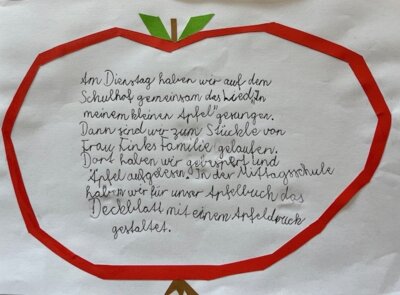 Am Dienstag haben wir auf dem
Schulhof gemeinsam das Lied „In
meinem kleinen Apfel" gesungen.
Dann sind wir zum Stückle von
Frau Links Familie gelaufen.
Dort haben wir gevespert und
Äpfel aufgelesen. In der Mittagsschule
haben wir für unser Apfelbuch das
Deckblatt mit einem Apfeldruck
gestaltet.